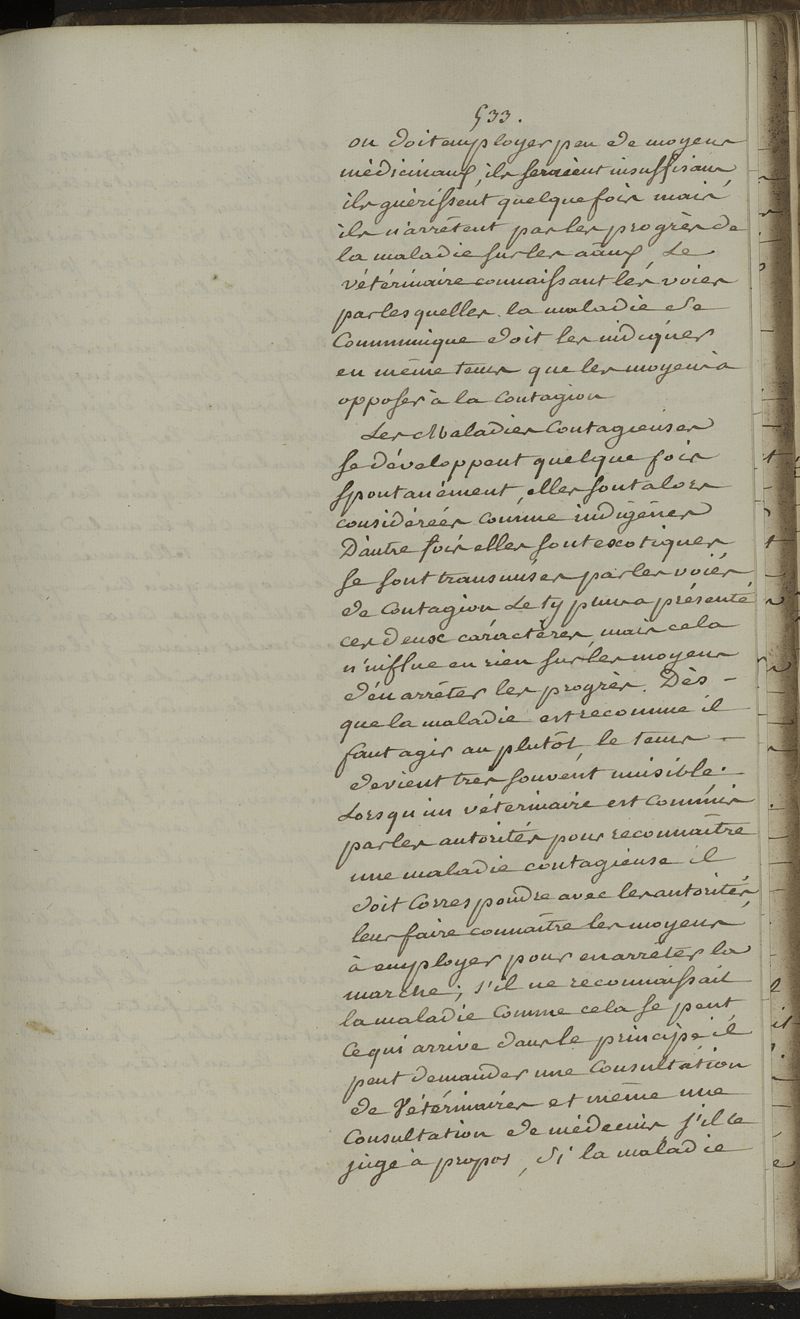 533.
on doit employer peu de moyens
médicinaux, ils seraient insuffisans
ils guérissent quelque fois mais
ils n'arrêtent pas les progrès de
la maladie sur les
vétérinaire connaissant les voies
par lesquelles la maladie se
Communique doit les indiquer
en même tems que les moyens à
opposer à la Contagion
Les Maladies Contagieuses
se développent quelque fois
spontanément, elles sont alors
considérées comme indigènes
D'autre fois elles sont exotiques
se sont transmises par les voies
de Contagion Le typhus a présenté
ces deux caractères, mais cela
n'influe en rien sur les moyens
d'en arrêter les progrès. Dès -
que la maladie est reconnue il
faut agir au plutôt le tems -
devient très souvent nuisible.
Lorsqu'un vétérinaire est commis
par les autorités pour reconnaitre
une maladie contagieuse il
doit Correspondre avec les autorités
leur faire connaître les moyens
à employer pour en arrêter la
marche; s'il ne reconnaissait
la maladie Comme cela se peut
Ce qui arrive dans le principe il
peut demander une Consultation
de Vétérinaires et même une
Consultation de médecins s'il le
juge à propos, Si la maladie